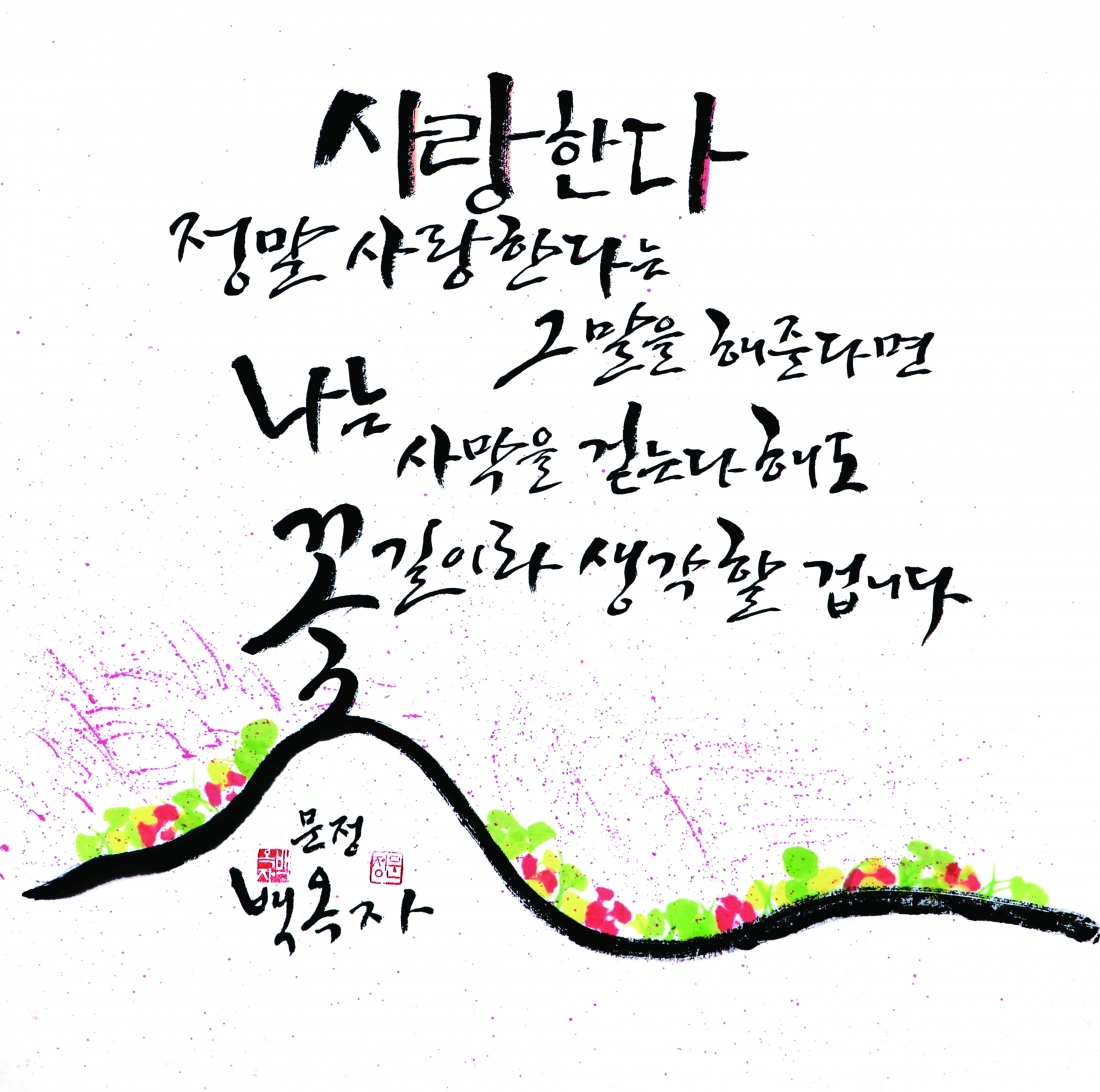 사랑한다
정말 사랑한다는
그 말을 해준다면
나는
사막을 걷는다 해도
꽃길이라 생각할 겁니다
문정
백옥자
옥백
자
문
정